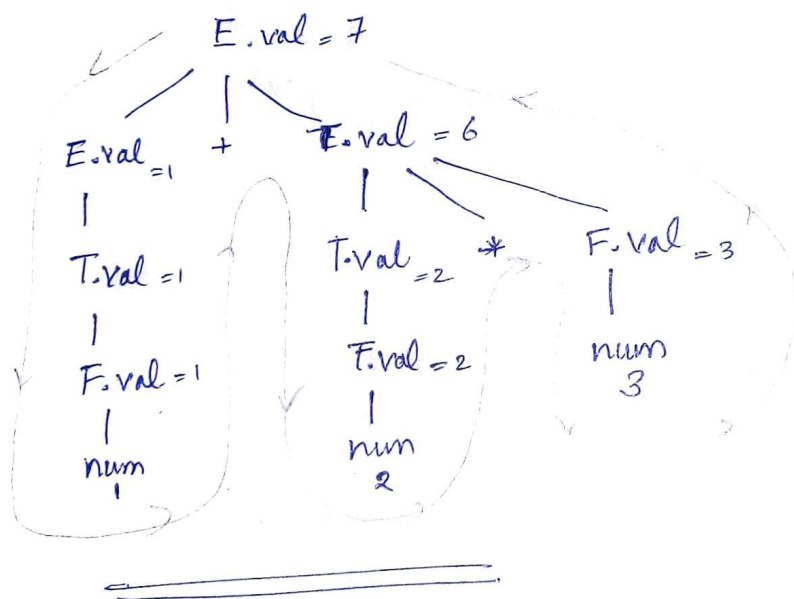 E.val = 7
E.val =1 + T.val = 6
T.val =1 T.val =2 * F.val = 3
F.val =1 F.val = 2 num
3
num 1 num 2